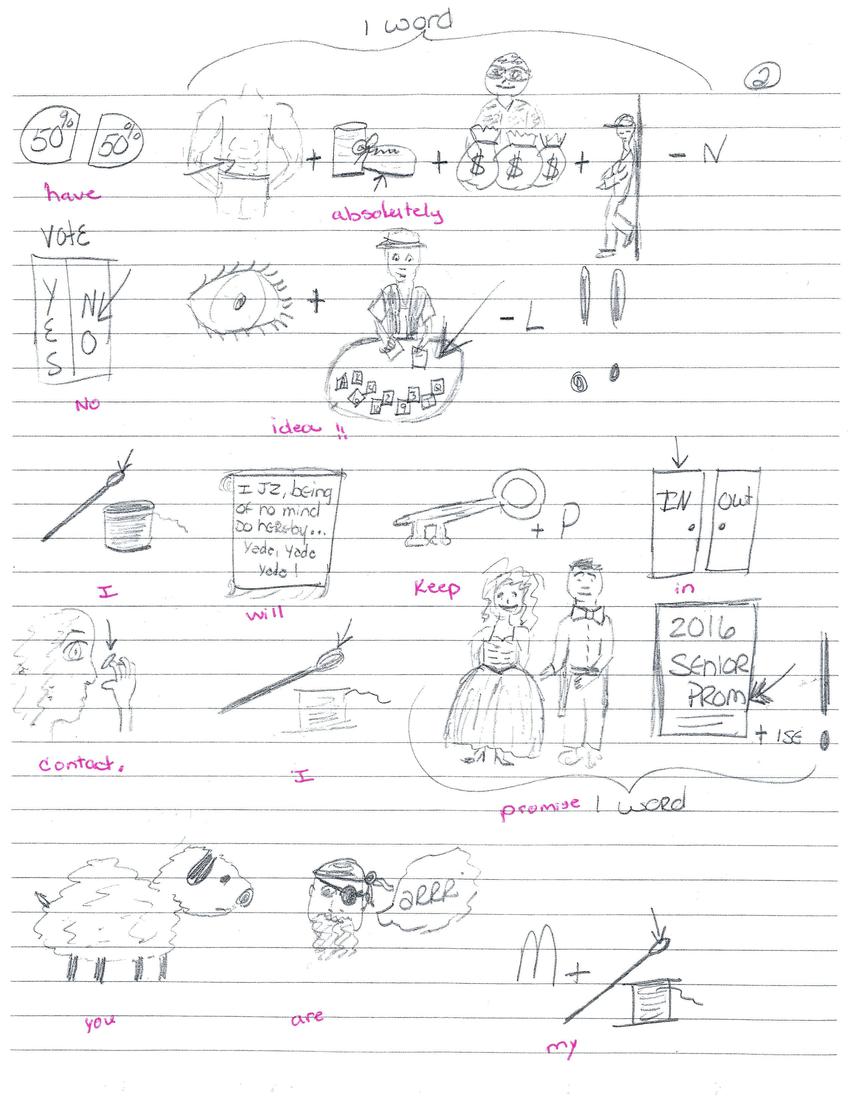 1 word
2
50% 50%
+ + + - N
have
absolutely
VOTE
YES NO
+ - L
NO
idea !!
I JZ, being
of no mind
Do hereby...
Yada, Yada
Yada!
+ P
IN OUT
I
will
Keep
in
2016
SENIOR
PROM
+ ISE !
contact.
I
promise 1 word
ARRR
M +
you
are
my